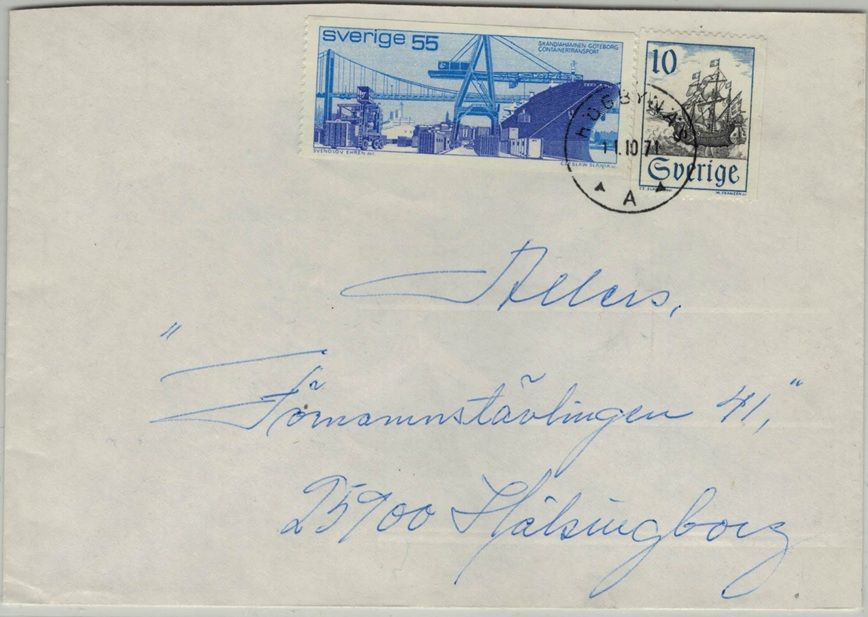 sverige 55
SKANDIAHAMNEN GÖTEBORG
CONTAINERTRANSPORT
SVENOLOV EHRÉN
CZESLAW SLANIA
10
Sverige
11.10.71
A
Allers,
"Förnamnstävlingen 41,"
25900 Hälsingborg